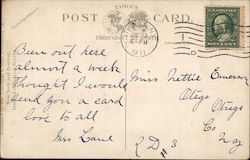 FAMOUS
POST CARD.
6-PM
1911
Been out here
almost a week
thought I would
send you a card
love to all
Mrs Lane
Miss Nettie Emerson
Otego
Otsego
Co
N.Y.
R D # 3